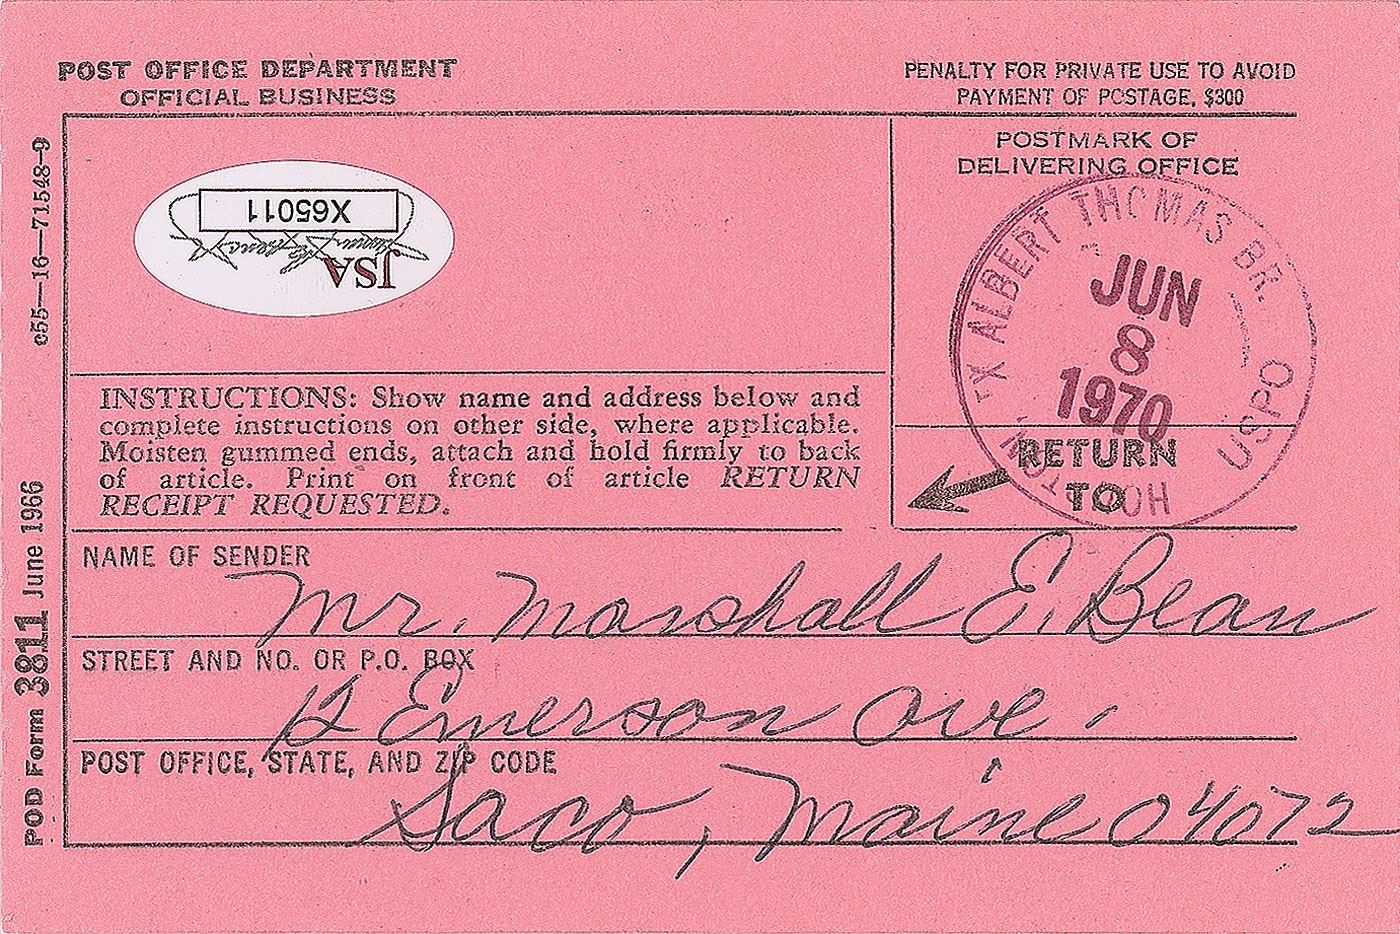 POST OFFICE DEPARTMENT
OFFICIAL BUSINESS
PENALTY FOR PRIVATE USE TO AVOID
PAYMENT OF POSTAGE, $300
c55—16—71548-9
POD Form 3811 June 1966
JSA
X65011
POSTMARK OF
DELIVERING OFFICE
HOUSTON, TX ALBERT THOMAS BR.
USPO
JUN
8
1970
INSTRUCTIONS: Show name and address below and
complete instructions on other side, where applicable.
Moisten gummed ends, attach and hold firmly to back
of article. Print on front of article RETURN
RECEIPT REQUESTED.
RETURN
TO
NAME OF SENDER
Mr. Marshall E. Bean
STREET AND NO. OR P.O. BOX
12 Emerson Ave.
POST OFFICE, STATE, AND ZIP CODE
Saco, Maine 04072